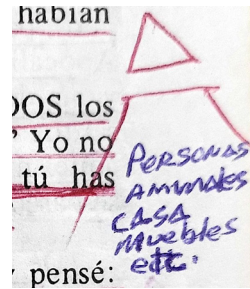 habían
DOS los
Yo no
tú has
pensé:
PERSONAS
ANIMALES
CASA
MUEBLES
etc.